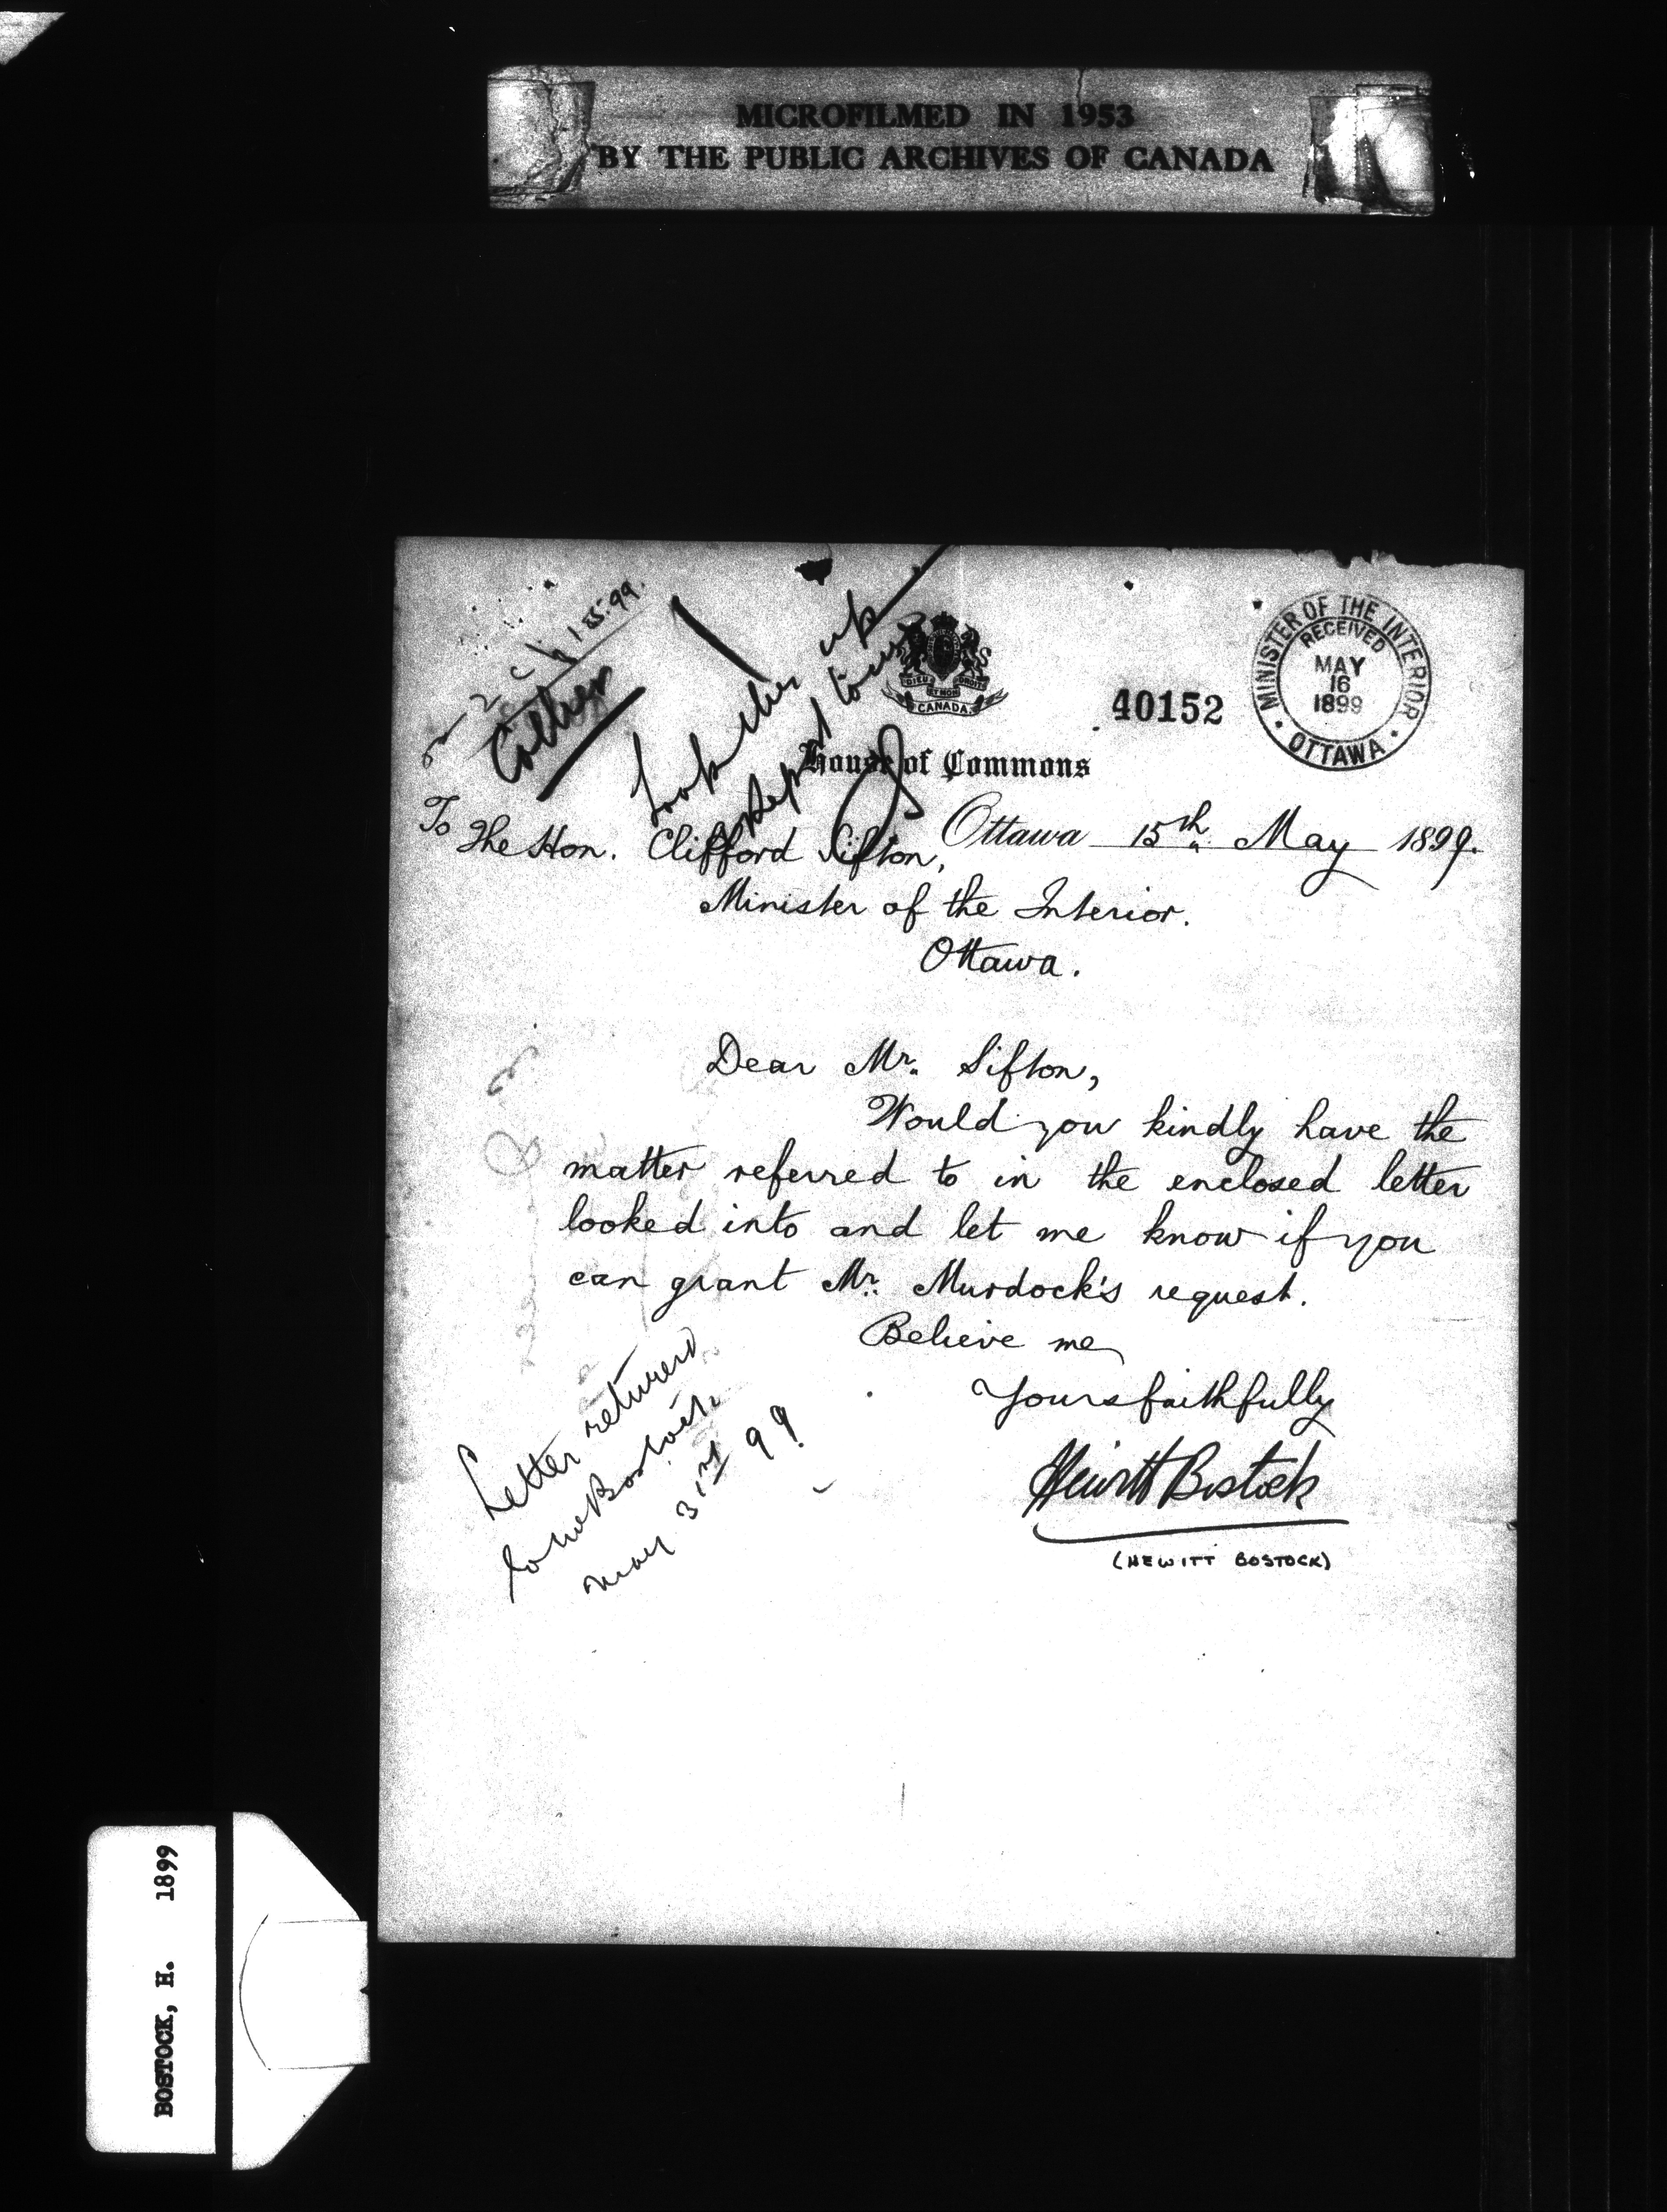 MICROFILMED IN 1953
BY THE PUBLIC ARCHIVES OF CANADA
Look this up
& report to me
DIEU ET MON DROIT
CANADA
40152
MINISTER OF THE INTERIOR
RECEIVED
MAY
16
1899
OTTAWA
House of Commons
Ottawa 15th May 1899.
To The Hon. Clifford Sifton,
Minister of the Interior.
Ottawa.
Dear Mr. Sifton,
Would you kindly have the
matter referred to in the enclosed letter
looked into and let me know if you
can grant Mr. Murdock's request.
Believe me
Yours faithfully
Hewitt Bostock
(HEWITT BOSTOCK)
Letter returned
to Mr Bostock
May 31st 99
BOSTOCK, H. 1899